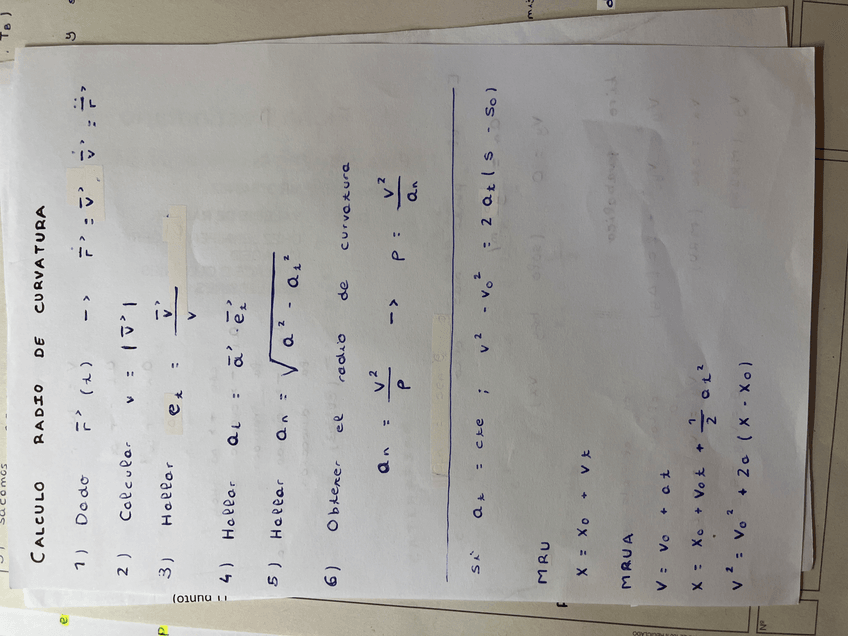 CALCULO RADIO DE CURVATURA
1) Dado r⃗ (t) -> ṙ⃗ = v⃗ , v̇⃗ = r̈⃗
2) Calcular v = |v⃗|
3) Hallar e⃗t = v⃗ / v
4) Hallar at = a⃗ · e⃗t
5) Hallar an = √(a² - at²)
6) Obtener el radio de curvatura
an = v²/ρ -> ρ = v²/an
Si at = cte ; v² - v0² = 2 at (s - s0)
MRU
X = X0 + Vt
MRUA
V = V0 + at
X = X0 + V0t + 1/2 at²
V² = V0² + 2a (X - X0)